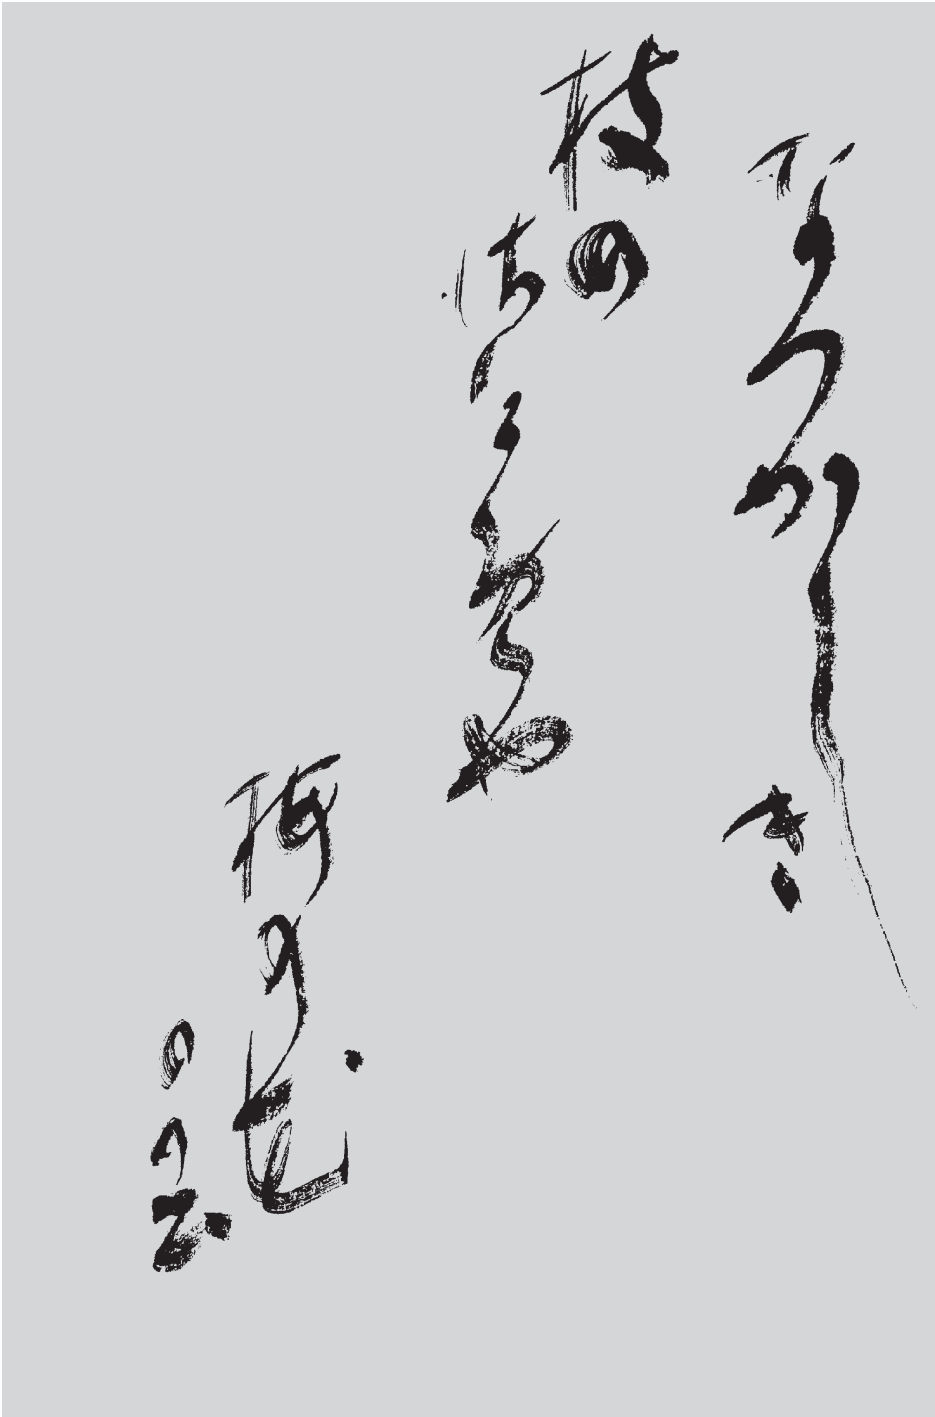 なつかしき
枝の
さけめや
梅の花